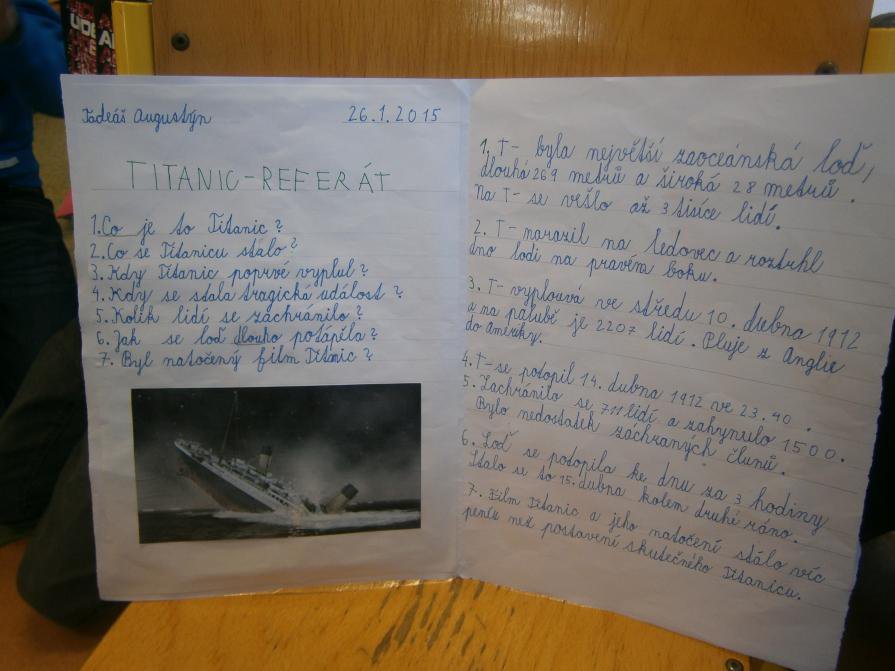 Tádeáš Augustýn 26.1.2015
TITANIC-REFERÁT
1. Co je to Titanic?
2. Co se Titanicu stalo?
3. Kdy Titanic poprvé vyplul?
4. Kdy se stala tragická událost?
5. Kolik lidí se zachránilo?
6. Jak se loď dlouho potápěla?
7. Byl natočený film Titanic?
1. T- byla největší zaoceánská loď,
dlouhá 269 metrů a široká 28 metrů.
Na T- se vešlo až 3 tisíce lidí.
2. T- narazil na ledovec a roztrhl
dno lodi na pravém boku.
3. T- vyplouvá ve středu 10. dubna 1912
a na palubě je 2207 lidí. Pluje z Anglie
do Ameriky.
4. T- se potopil 14. dubna 1912 ve 23.40.
5. Zachránilo se 711 lidí a zahynulo 1500.
Bylo nedostatek záchraných člunů.
6. Loď se potopila ke dnu za 3 hodiny
Stalo se to 15. dubna kolem druhé ráno.
7. Film Titanic a jeho natočení stálo víc
peněz než postavení skutečného Titanicu.